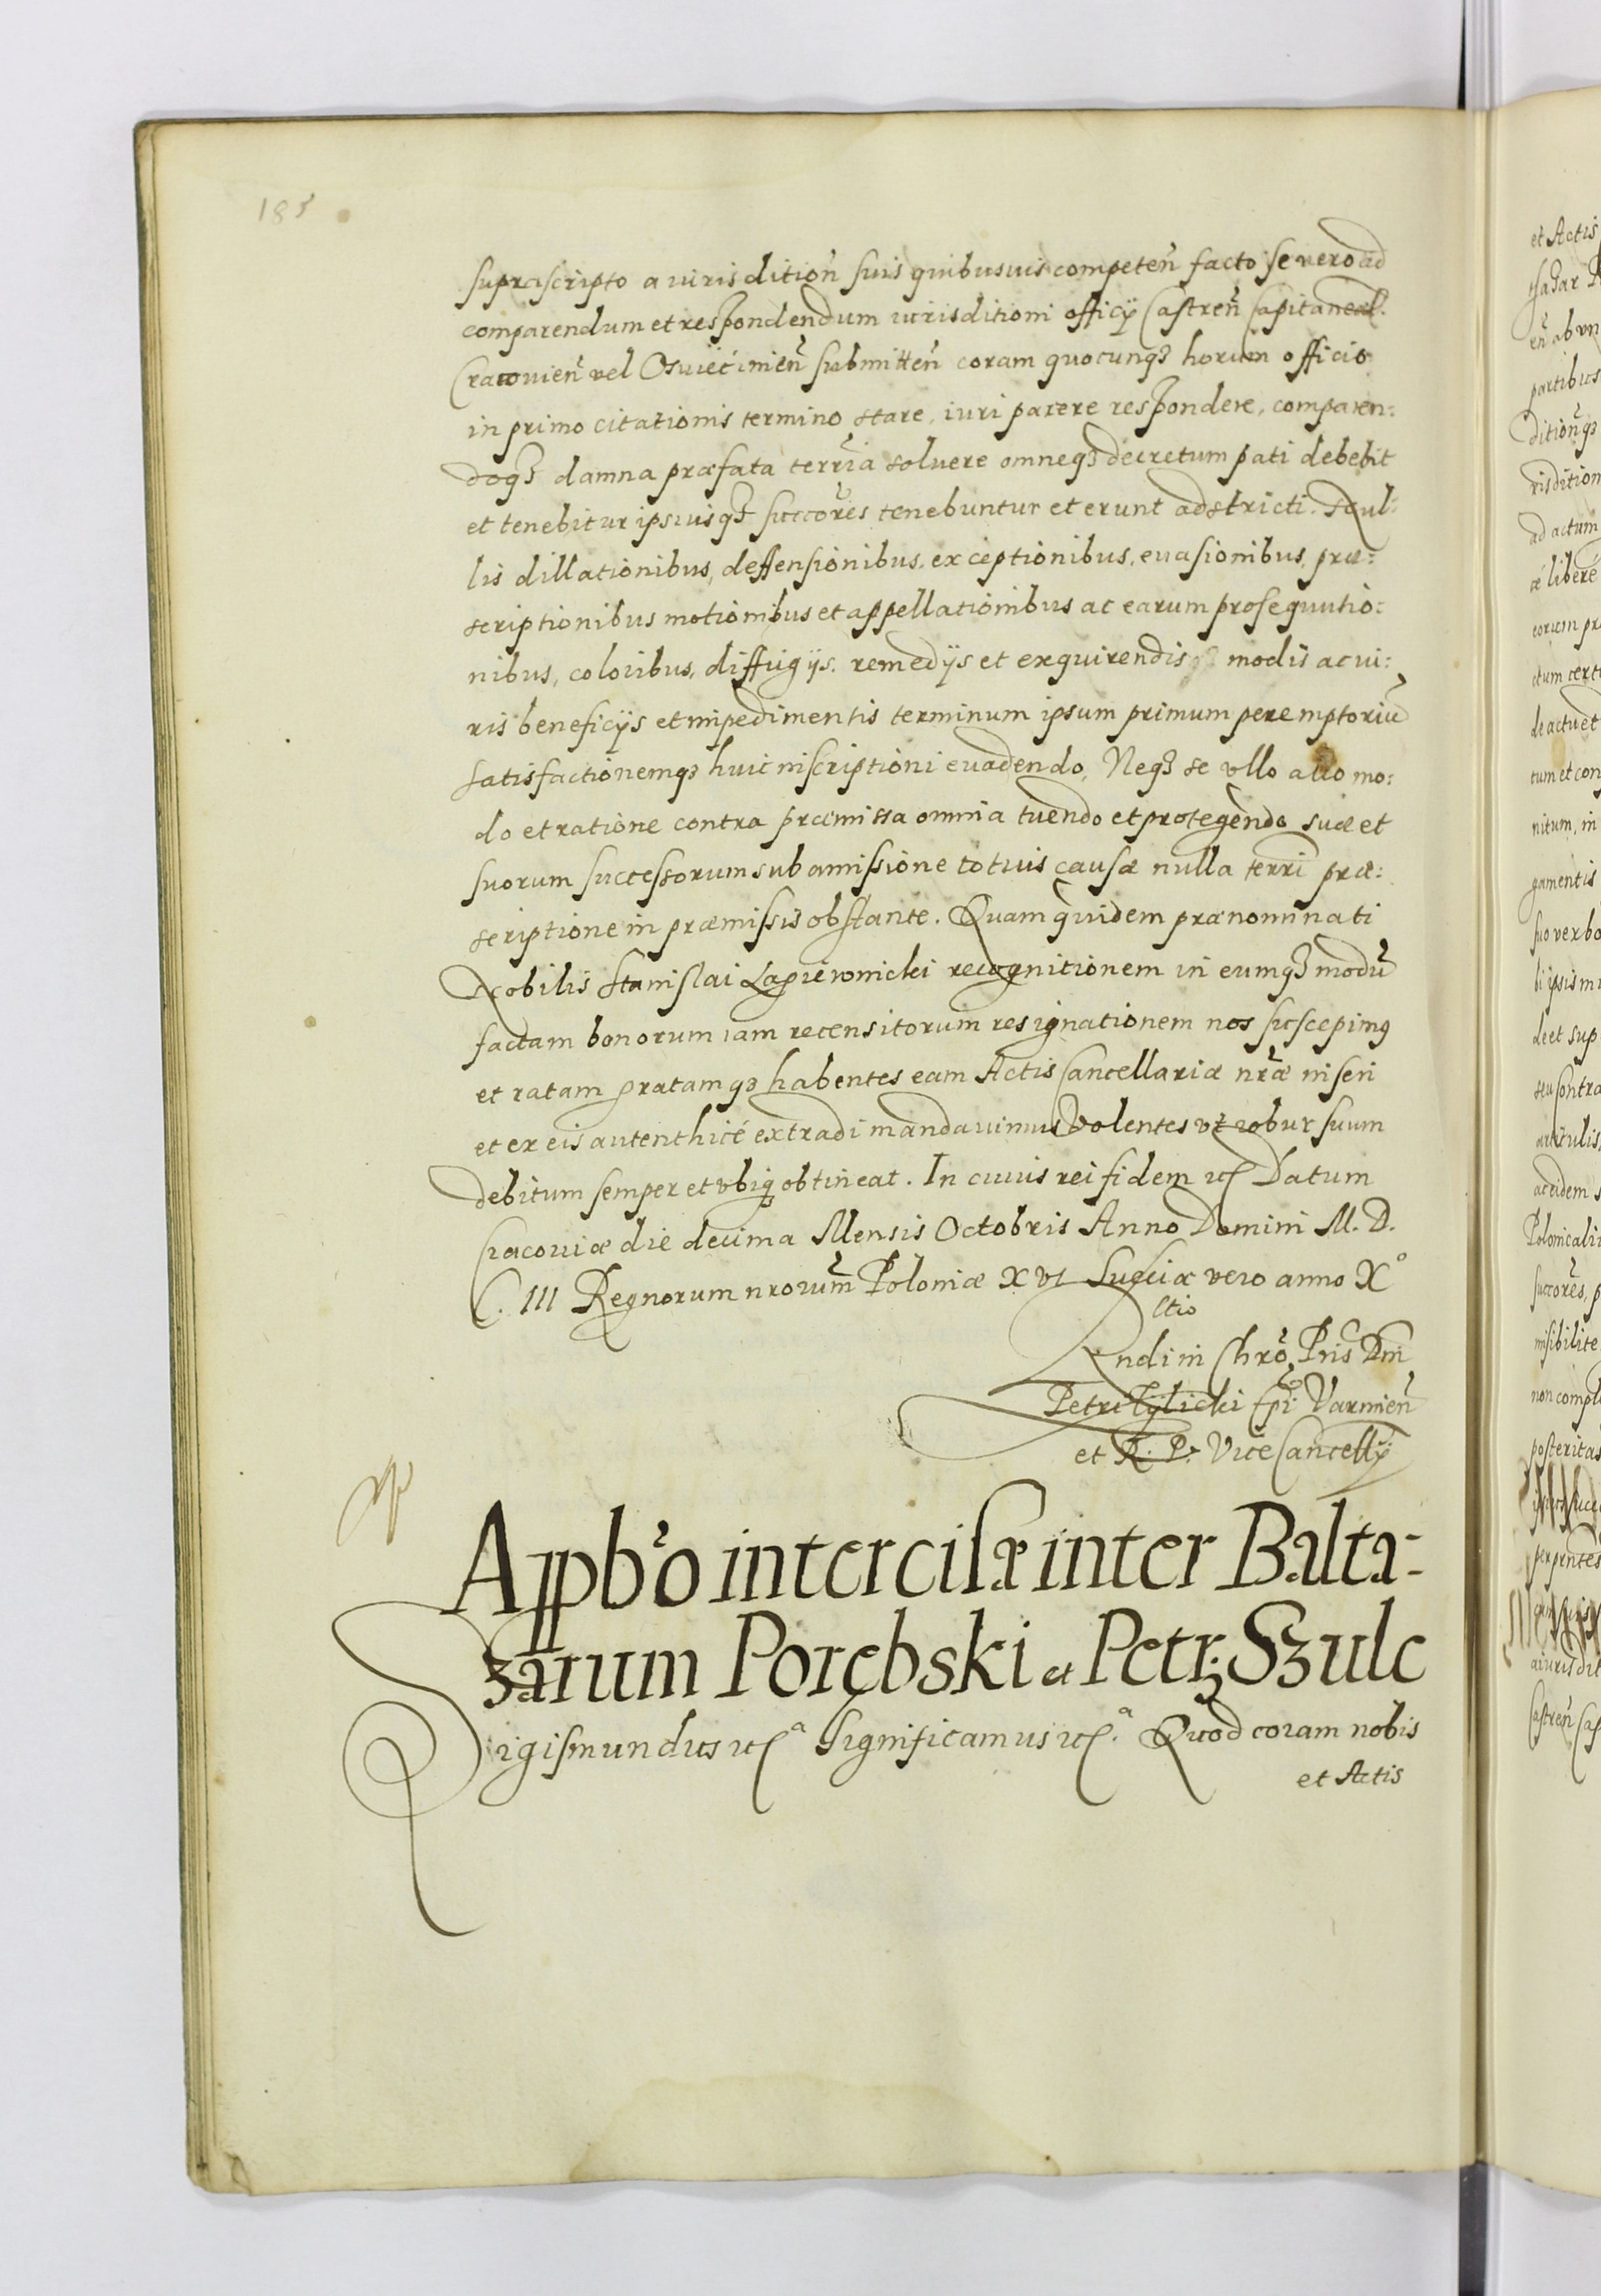 185
supra scripto a iurisdition̄ suis quibusuis competen̄ facto se vero ad
comparendum et respondendum iurisditioni officÿ Castren̄ Capitaneal.
Cracouien̄ vel Osuiećimien̄ submitten̄ coram quocunqꝫ horum officio
in primo citationis termino stare, iuri parere respondere, comparen:
doqꝫ damna præfata terr̄ia soluere omneqꝫ decretum pati debebit
et tenebitur ipsiusqꝫ succōres tenebuntur et erunt adstricti. Nul:
lis dillationibus, deffensionibus, exceptionibus, euasionibus, præ:
scriptionibus motionibus et appellationibus ac earum prosequutio:
nibus, coloribus, diffugÿs, remedÿs et exquirendis modis ac iu:
ris beneficÿs et impedimentis terminum ipsum primum peremptoriū
satisfactionemqꝫ huic inscriptioni euadendo, Neqꝫ se vllo alio mo:
do et ratione contra præmissa omnia tuendo et protegendo suæ et
suorum successorum sub amissione totius causæ nulla terr̄i præ:
scriptione in præmissis obstante. Quam quidem prænominati
Nobilis Stanislai Łapieronicki recognitionem in eumqꝫ modū
factam bonorum iam recensitorum resignationem nos suscepimꝰ
et ratam gratamqꝫ habentes eam Actis Cancellariæ nr̄æ inseri
et ex eis autenthicé extradi mandauimus Volentes vt robur suum
debitum semper et vbiqꝫ obtineat. In cuius rei fidem etc Datum
Cracouiæ die decima Mensis Octobris Anno Domini M. D.
C. III Regnorum nrorum̄ Poloniæ XVI Sueciæ vero anno X°
Rndi in Chrō Pris Dni
ltio
Petri Tÿlicki Epi Varmien̄
et R. P. ViceCancellÿ
Appb̄o intercisæ inter Balta-
zarum Porębski et Petrꝫ Szulc
Sigismundus etc.ᵃ Significamus etc.ᵃ Quod coram nobis
et Actis